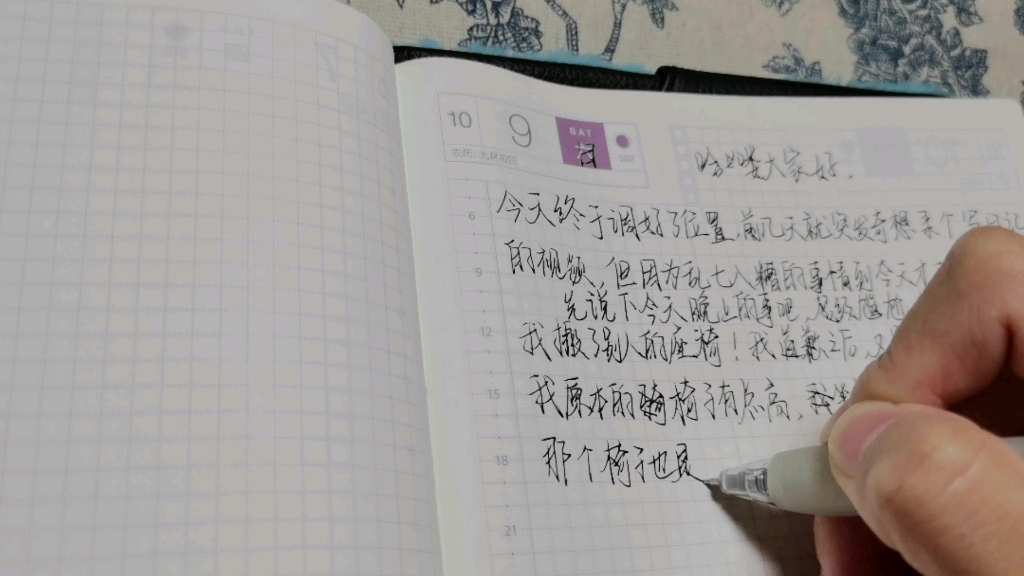 10 9 SAT
农历 九月初四 282
哈喽大家好.
今天终于调好了位置,前几天就突发奇想来个写日记
的视频,但因为乱七八糟的事情到今天才
先说下今天晚上的事吧,
我搬了别人的座椅!我道歉之后,
我原本的椅子有点高,
那个椅子也是
6
9
12
15
18
21